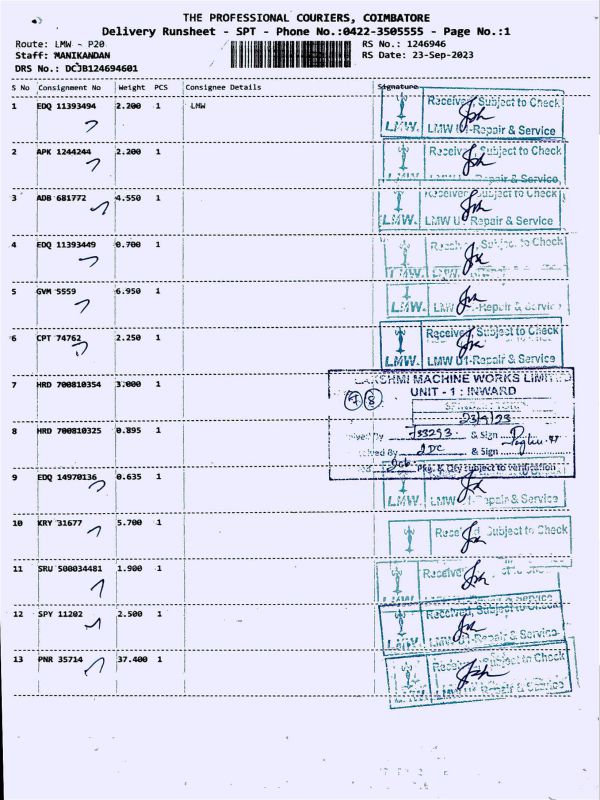 THE PROFESSIONAL COURIERS, COIMBATORE
Delivery Runsheet - SPT - Phone No.:0422-3505555 - Page No.:1
Route: LMW - P20 RS No.: 1246946
Staff: MANIKANDAN RS Date: 23-Sep-2023
DRS No.: DCJB124694601
S No Consignment No Weight PCS Consignee Details Signature
1 EDQ 11393494 2.200 1 LMW
Received, Subject to Check
LMW. LMW U1-Repair & Service
2 APK 1244244 2.200 1
Subject to Check
Repair & Service
3 ADB 681772 4.550 1
Subject to Check
LMW. LMW U Repair & Service
4 EDQ 11393449 0.700 1
to Check
LMW.
5 GVM 5559 6.950 1
LMW. -Repair &
6 CPT 74762 2.250 1
Received, Subject to Check
LMW. LMW U1-Repair & Service
7 HRD 700810354 3.000 1
LAKSHMI MACHINE WORKS LIMITED
UNIT - 1 : INWARD
7 8
23/9/23
8 HRD 700810325 0.895 1
By 733293 & Sign
By & Sign
Pkg. & Qty subject to verification
9 EDQ 14970136 0.635 1
LMW. LMW & Service
10 KRY 31677 5.700 1
Subject to Check
11 SRU 500034481 1.900 1
Receive
LMW.
12 SPY 11202 2.500 1
Received, Subject to Check
LMW. LMW U -Repair & Service
13 PNR 35714 37.400 1
Subject to Check
LMW. LMW Repair & Service